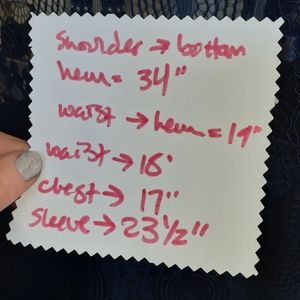 shoulder → bottom
hem = 34"
waist → hem = 19"
waist → 16'
chest → 17"
sleeve → 23 1/2"